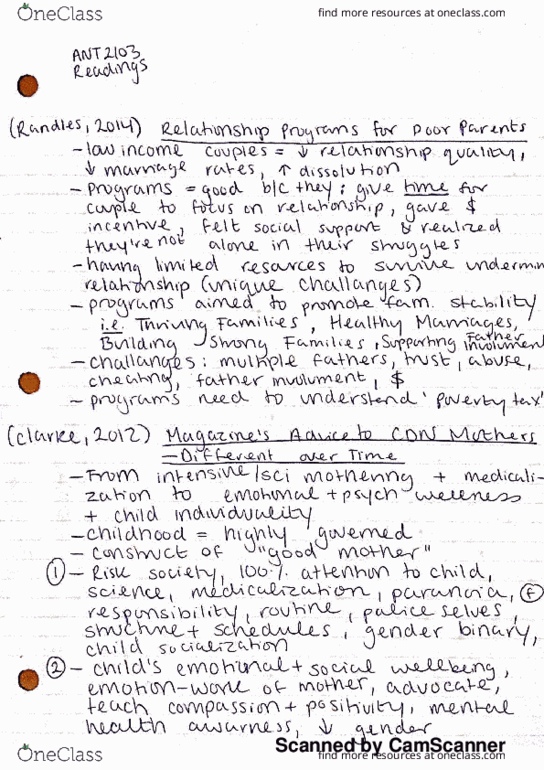 OneClass
find more resources at oneclass.com
ANT2103
Readings
(Randles, 2014) Relationship Programs for Poor Parents
- low income couples = ↓ relationship quality,
↓ marriage rates, ↑ dissolution
- programs = good b/c they: give time for
couple to focus on relationship, gave $
incentive, felt social support & realized
they're not alone in their struggles
- having limited resarces to survive undermin
relationship (unique challanges)
- programs aimed to promote fam. stability
i.e. Thriving Families, Healthy Marriages,
Building Strong Families, Supporting Father Involvement
- challanges: multiple fathers, trust, abuse,
cheating, father involvment, $
- programs need to understand 'poverty tax'
(Clarke, 2012) Magazine's Advice to CDN Mothers
- Different over Time
- From intensive/sci mothering + medicali-
zation to emotional + psych wellness
+ child individuality
- childhood = highly governed
- construct of "good mother"
① - Risk society, 100% attention to child,
science, medicalization, paranoia, Ⓕ
responsibility, routine, police selves,
structure + schedules, gender binary,
child socialization
② - child's emotional + social wellbeing,
emotion-work of mother, advocate,
teach compassion + positivity, mental
health awarness, ↓ gender
Scanned by CamScanner
OneClass
find more resources at oneclass.com